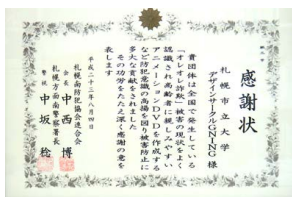 感謝状
札幌市立大学
デザインサークルGNING様
貴団体は全国で発生している
「オレオレ詐欺」被害の現状をよく
認識され高齢者に親しみやすい
アニメーションDVDを作成する
など防犯意識の高揚を図り被害防止に
多大な貢献をされました
その功労をたたえ深く感謝の意を
表します
平成二十三年八月四日
札幌南防犯協会連合会
会長 中西 博
札幌方面南警察署長
警視 中坂 稔